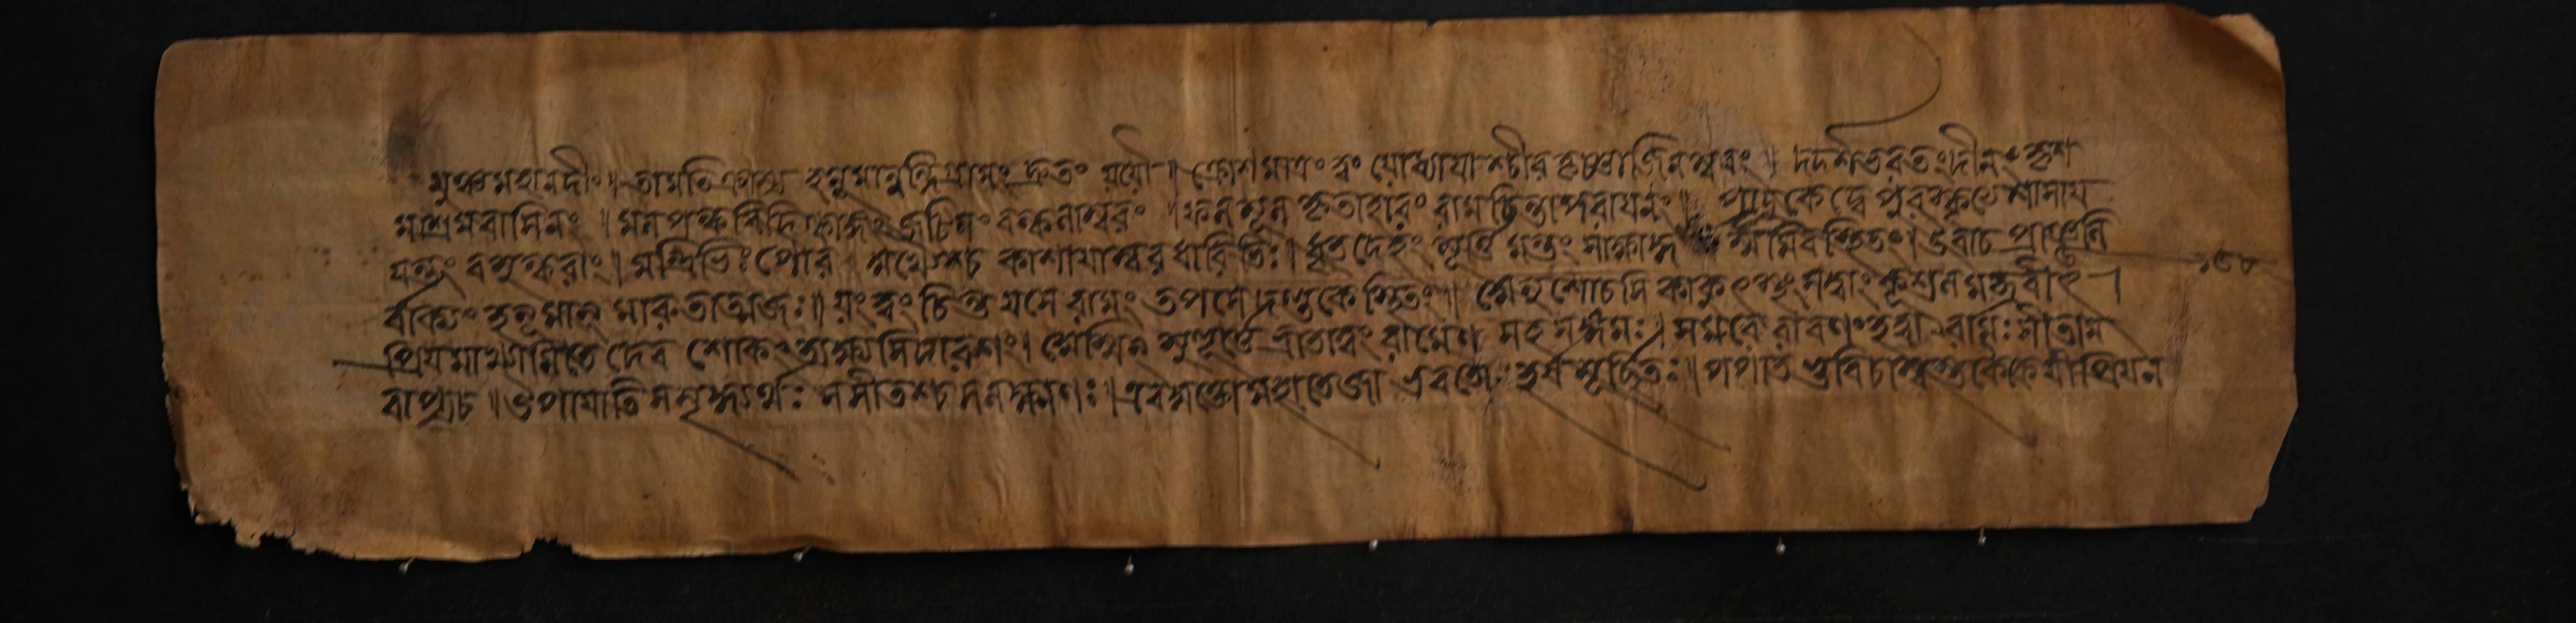 মুঞ্চমহানদীং॥তামতিক্রাম্য হনুমান্নন্দিগ্রামং দ্রুতং যযৌ॥ক্রোশমাত্রং ত্বযোধ্যাযাশ্চীরকৃষ্ণাজিনাম্বরং॥দদর্শভরতংদীনং কৃশ
মাশ্রমবাসিনং॥মলপঙ্কবিদিগ্ধাঙ্গং জটিলং বল্কলাম্বরং॥ফলমূলকৃতাহারং রামচিন্তাপরাযনং॥পাদুকে দ্বে পুরস্কৃত্য শাসায
যন্তং বসুন্ধরাং॥মন্ত্রিভিঃ পৌর মুখ্যৈশ্চ কাশাযাম্বরধারিভিঃ॥ধৃতদেহং মূর্ত্তিমন্তং সাক্ষাদ্ধর্ম্মমিবস্থিতং।উবাচ প্রাঞ্জলি
র্বাক্যং হনূমান্ মারুতাত্মজঃ॥যং ত্বং চিন্তযসে রামং তাপসং দণ্ডকে স্থিতং॥ শোচসি কাকুৎস্থং সত্বাং কুশলমব্রবীৎ।
প্রিযমাখ্যামিতে দেব শোকং ত্যক্ষ্যসিদারুণং।অস্মিন্ মুহূর্ত্তে ভ্রাতাত্বং রামেণ সহ সঙ্গমঃ।সমরে রাবণংহত্বা রামঃ সীতাম
বাপ্যচ॥উপাযাতি সমৃদ্ধার্থঃ সসীতশ্চ সলক্ষ্মণঃ॥এবমুক্তোমহাতেজা ভরতো হর্ষমূর্চ্ছিতঃ॥পপাত ভুবিচাস্বস্তকৈকেযীপ্রিযন